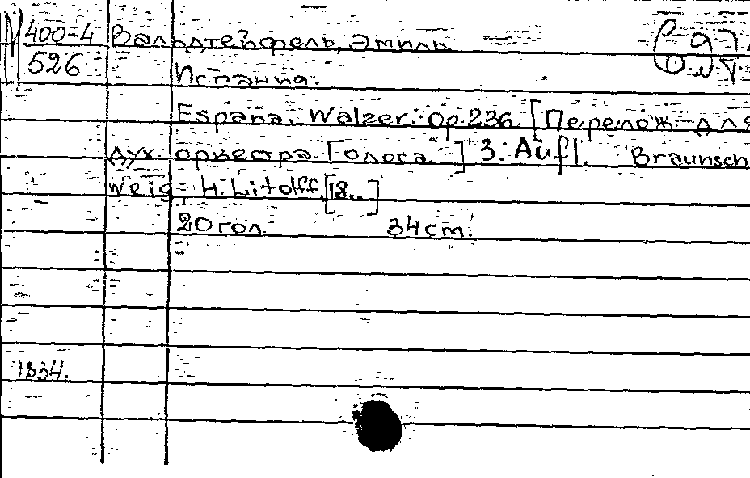 400-4 Вальдтейфель, Эмиль
526 Испания.
Espana. Walzer. Op. 236 [Перелож. для
дух. оркестра. Голоса.] 3. Aufl. Braunsch
weig, H. Litolff, [18..]
20 гол. 34 cm.
1834.